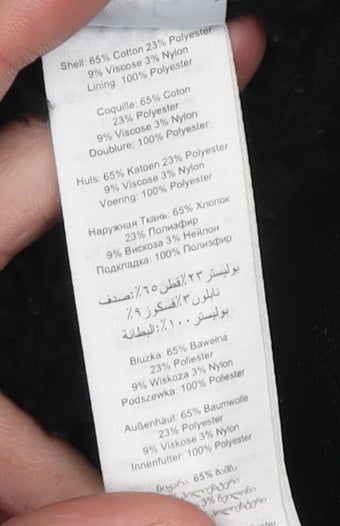 Shell: 65% Cotton 23% Polyester
9% Viscose 3% Nylon
Lining: 100% Polyester
Coquille: 65% Coton
23% Polyester
9% Viscose 3% Nylon
Doublure: 100% Polyester
Huls: 65% Katoen 23% Polyester
9% Viscose 3% Nylon
Voering: 100% Polyester
Наружная Ткань: 65% Хлопок
23% Полиэфир
9% Вискоза 3% Нейлон
Подкладка: 100% Полиэфир
بوليستر ٢٣٪قطن ٦٥٪:صدف
نايلون ٣٪فسكوز ٩٪
بوليستر ١٠٠٪:البطانة
Bluzka: 65% Bawełna
23% Poliester
9% Wiskoza 3% Nylon
Podszewka: 100% Poliester
Außenhaut: 65% Baumwolle
23% Polyester
9% Viskose 3% Nylon
Innenfutter: 100% Polyester
65% ბამბა
პოლიესტერი
3% ნეილონი